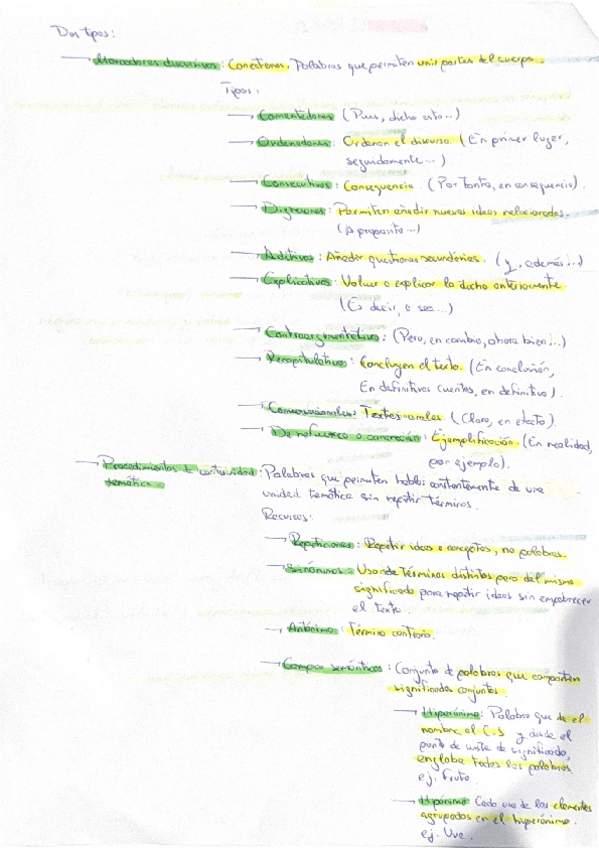 Dos tipos:
→ Marcadores discursivos: Conectores. Palabras que permiten unir partes del cuerpo.
Tipos:
→ Comentadores (Pues, dicho esto...)
→ Ordenadores: Ordenan el discurso. (En primer lugar,
seguidamente...)
→ Consecutivos: Consecuencia. (Por tanto, en consecuencia).
→ Digresores: Permiten añadir nuevas ideas relacionadas.
(A propósito...)
→ Aditivos: Añadir questiones secundarias. (y, además...)
→ Explicativos: Volver a explicar lo dicho anteriormente
(Es decir, o sea...)
→ Contraargumentativo: (Pero, en cambio, ahora bien...)
→ Recapitulativo: Concluyen el texto. (En conclusión,
En definitivas cuentas, en definitiva).
→ Conversacionales: Textos orales. (Claro, en efecto).
→ De refuerzo o concreción: Ejemplificación. (En realidad,
por ejemplo).
→ Procedimientos de continuidad temática: Palabras que permiten hablar constantemente de una
unidad temática sin repetir términos.
Recursos:
→ Repeticiones: Repetir ideas o conceptos, no palabras.
→ Sinónimos: Uso de términos distintos pero del mismo
significado para repetir ideas sin empobrecer
el texto.
→ Antónimo: Término contrario.
→ Campos semánticos: Conjunto de palabras que comparten
significados conjuntos.
→ Hiperónimo: Palabra que da el
nombre al C.S y desde el
punto de vista de significado,
engloba todas las palabras.
ej. Fruta.
→ Hipónimo: Cada uno de los elementos
agrupados en el hiperónimo.
ej. Uva.